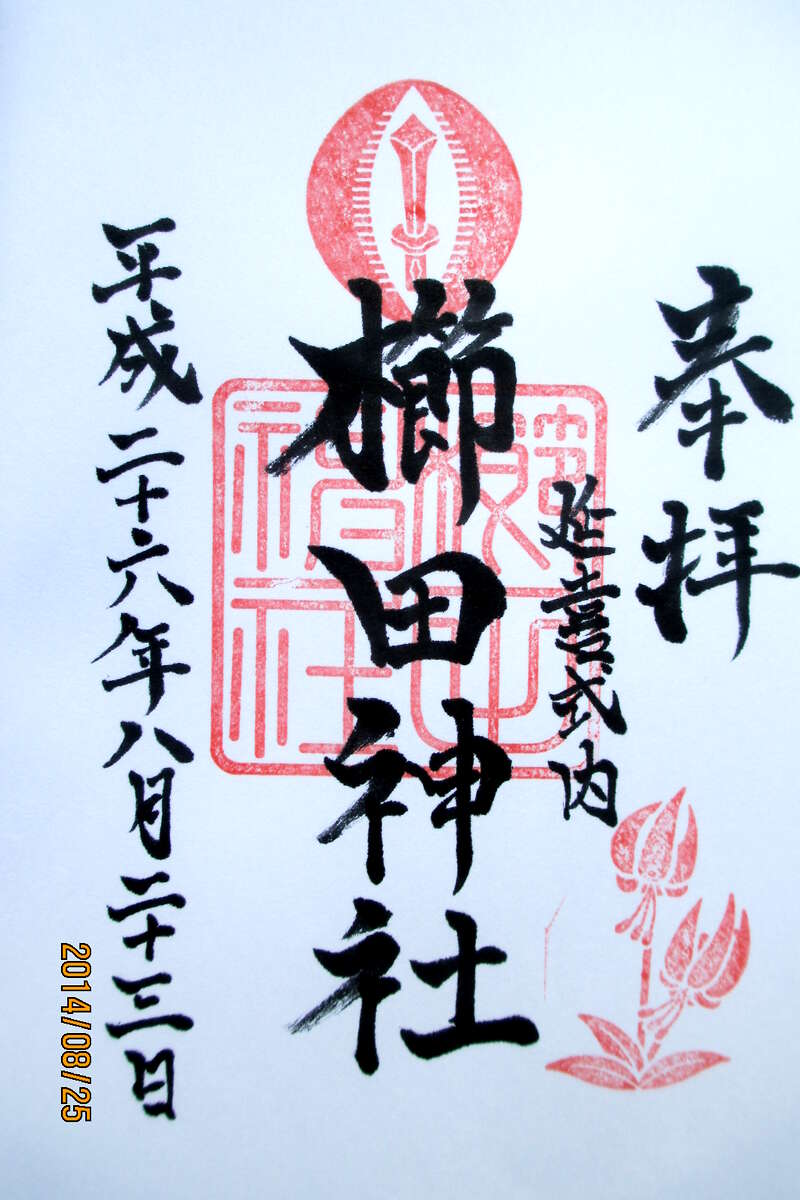 奉拝
延喜式内
櫛田神社
平成二十六年八月二十三日
2014/08/25